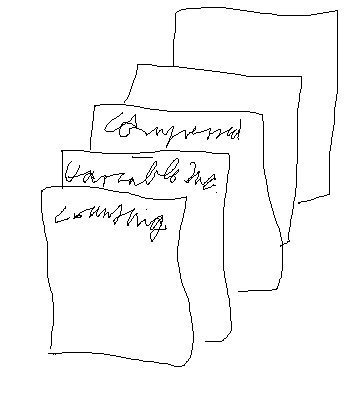 Compressed
Variable Inc.
Counting